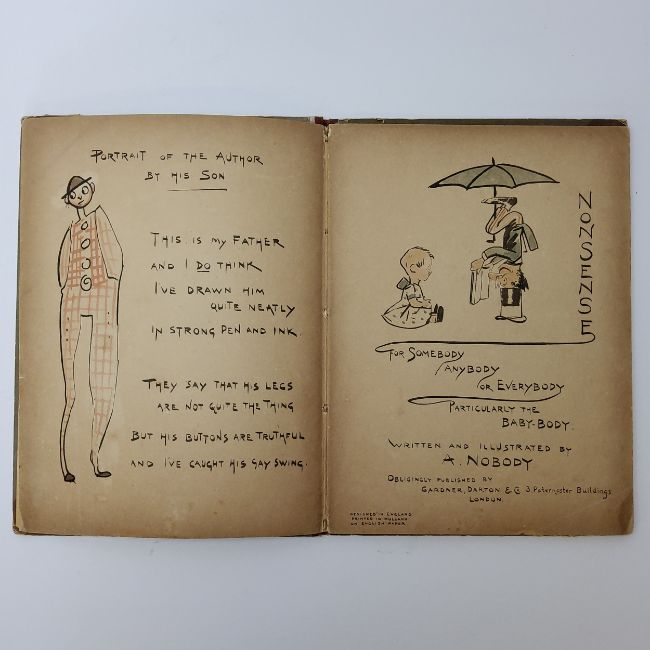 PORTRAIT OF THE AUTHOR
BY HIS SON
THIS IS MY FATHER
AND I DO THINK
I'VE DRAWN HIM
QUITE NEATLY
IN STRONG PEN AND INK.
THEY SAY THAT HIS LEGS
ARE NOT QUITE THE THING
BUT HIS BUTTONS ARE TRUTHFUL
AND I'VE CAUGHT HIS GAY SWING.
NONSENSE
FOR SOMEBODY
ANYBODY
OR EVERYBODY
PARTICULARLY THE
BABY-BODY.
WRITTEN AND ILLUSTRATED BY
A. NOBODY
OBLIGINGLY PUBLISHED BY
GARDNER, DARTON & Co 3 Paternoster Buildings
LONDON.
DESIGNED IN ENGLAND
PRINTED IN HOLLAND
ON ENGLISH PAPER